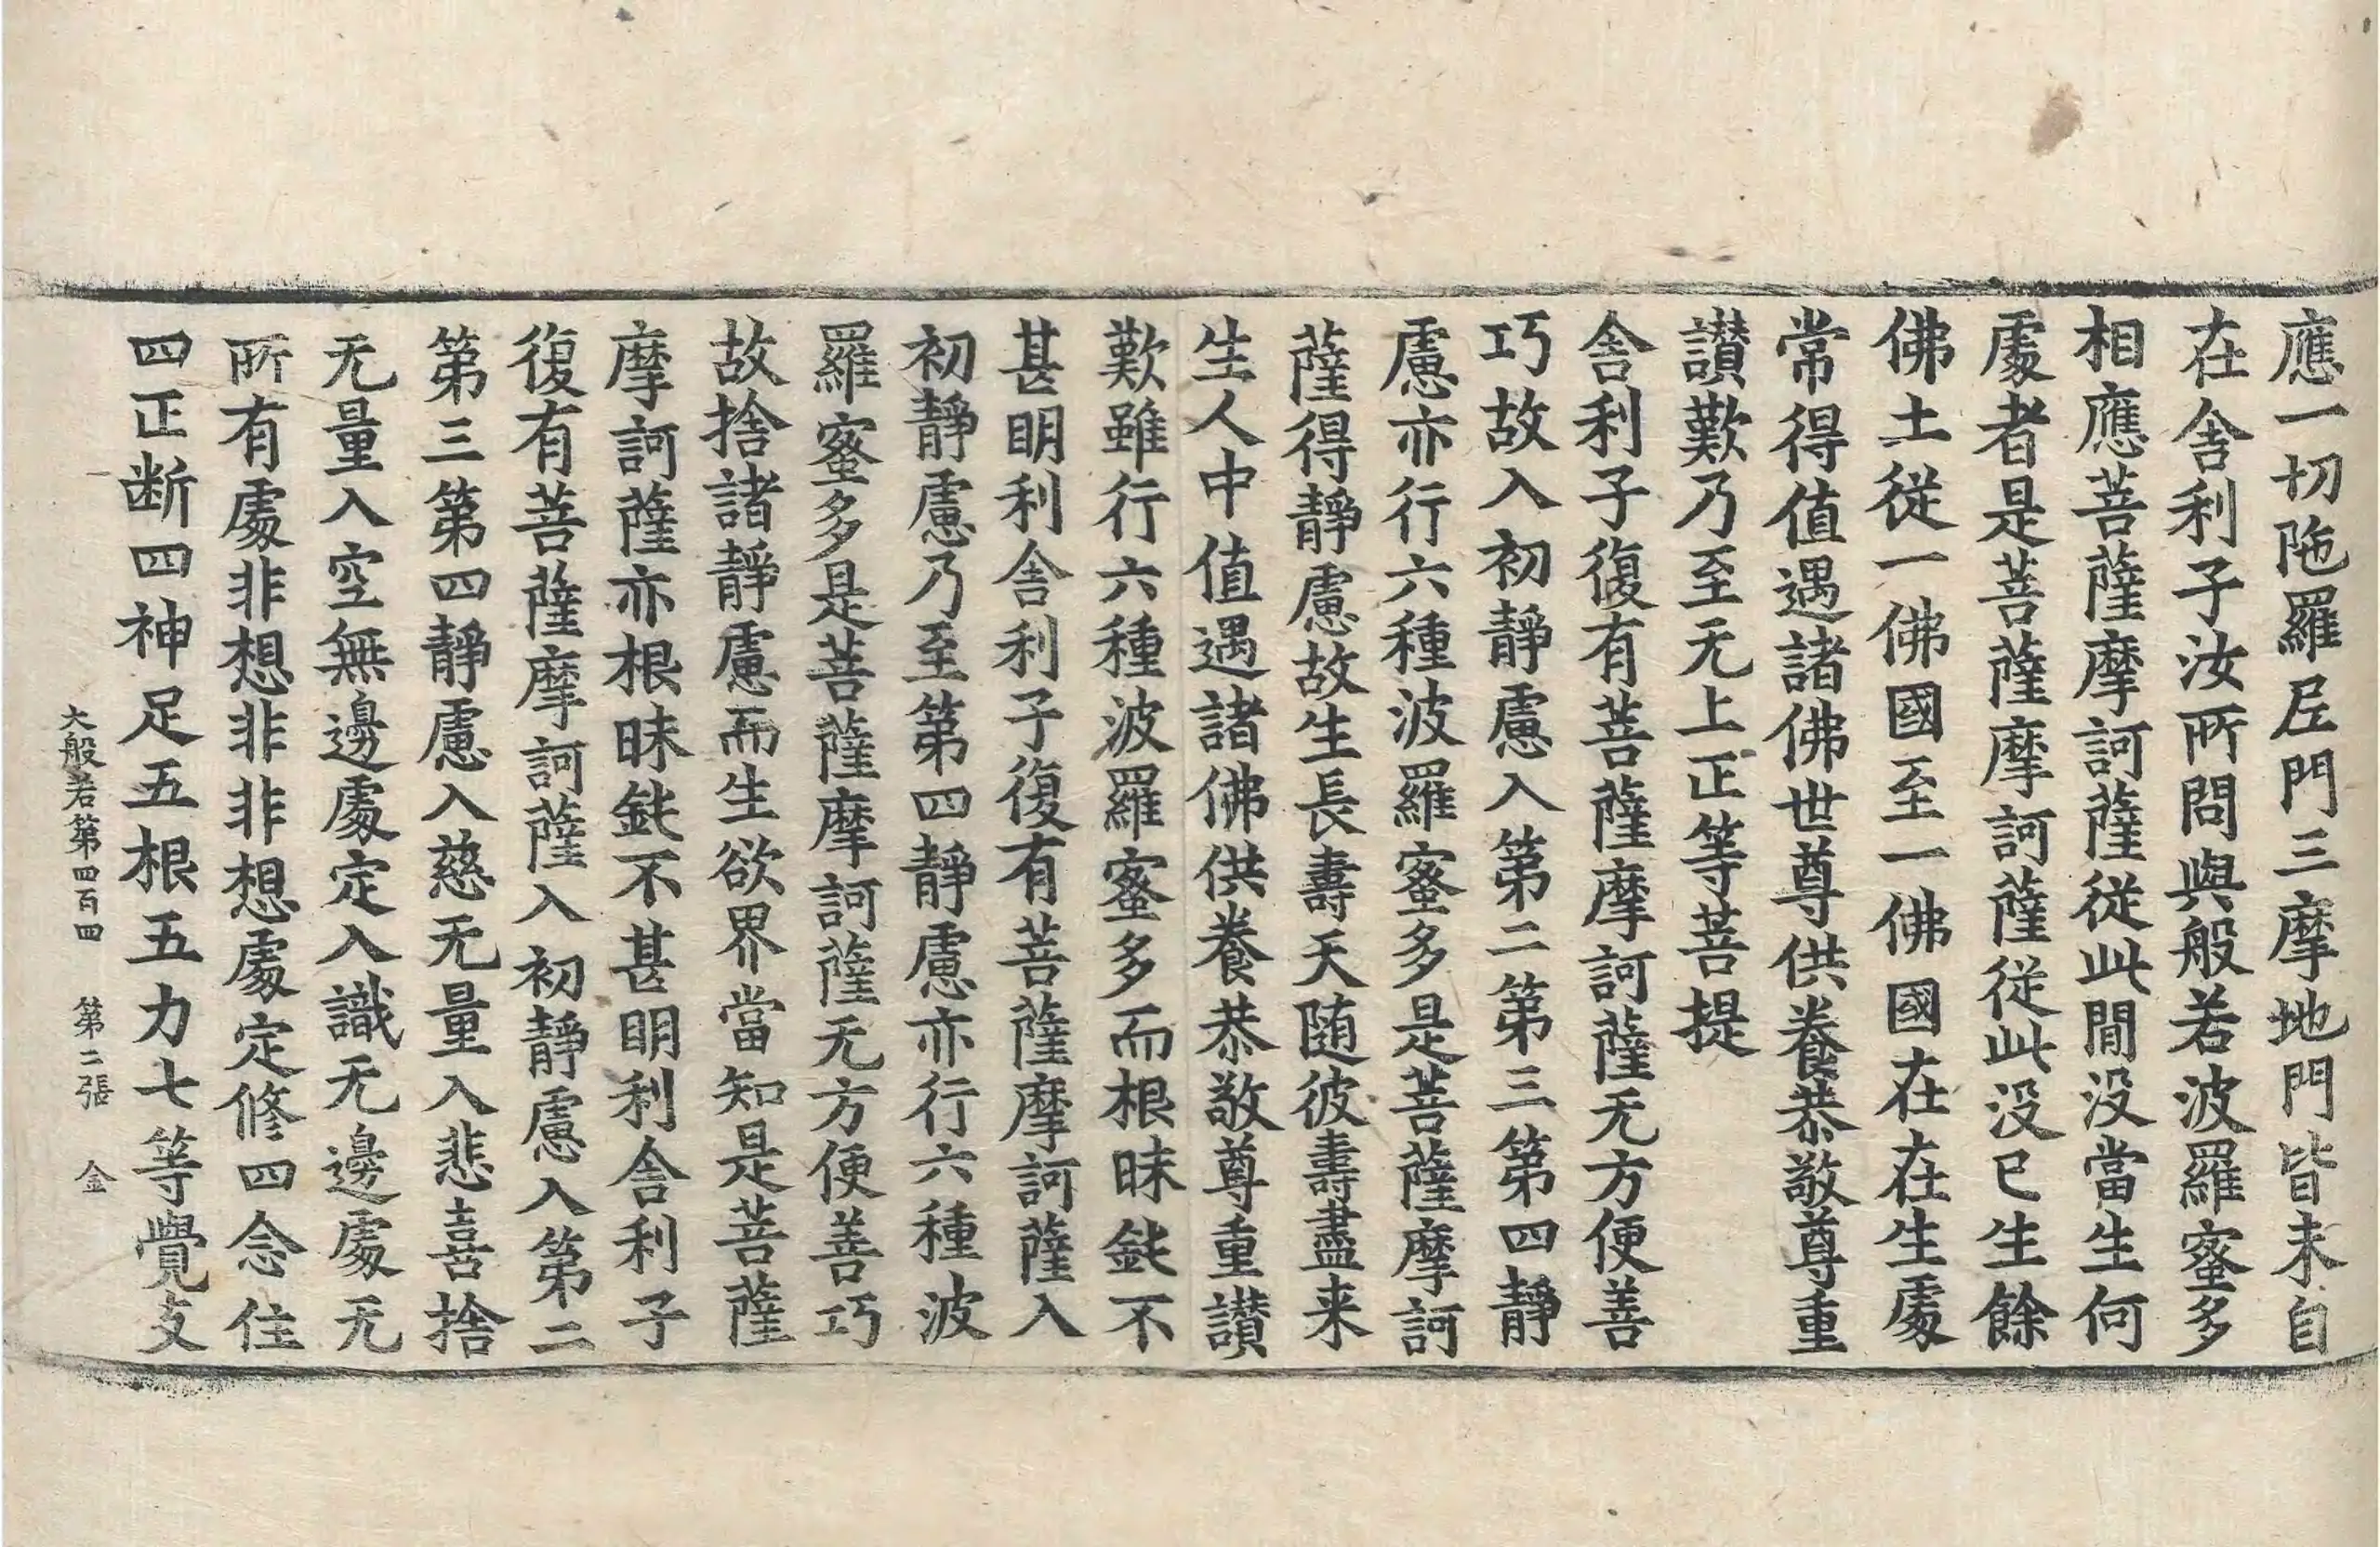 應一切陁羅尼門三摩地門皆未自
在舍利子汝所問與般若波羅蜜多
相應菩薩摩訶薩從此間没當生何
處者是菩薩摩訶薩從此没已生餘
佛土從一佛國至一佛國在在生處
常得值遇諸佛世尊供養恭敬尊重
讃歎乃至无上正等菩提
舍利子復有菩薩摩訶薩无方便善
巧故入初靜慮入第二第三第四靜
慮亦行六種波羅蜜多是菩薩摩訶
薩得靜慮故生長壽天随彼壽盡来
生人中值遇諸佛供養恭敬尊重讃
歎雖行六種波羅蜜多而根昧鈍不
甚明利舍利子復有菩薩摩訶薩入
初靜慮乃至第四靜慮亦行六種波
羅蜜多是菩薩摩訶薩无方便善巧
故捨諸靜慮而生欲界當知是菩薩
摩訶薩亦根昧鈍不甚明利舍利子
復有菩薩摩訶薩入初靜慮入第二
第三第四靜慮入慈无量入悲喜捨
无量入空無邊處定入識无邊處无
所有處非想非非想處定修四念住
四正断四神足五根五力七等覺支
大般若第四百四 第二張 金